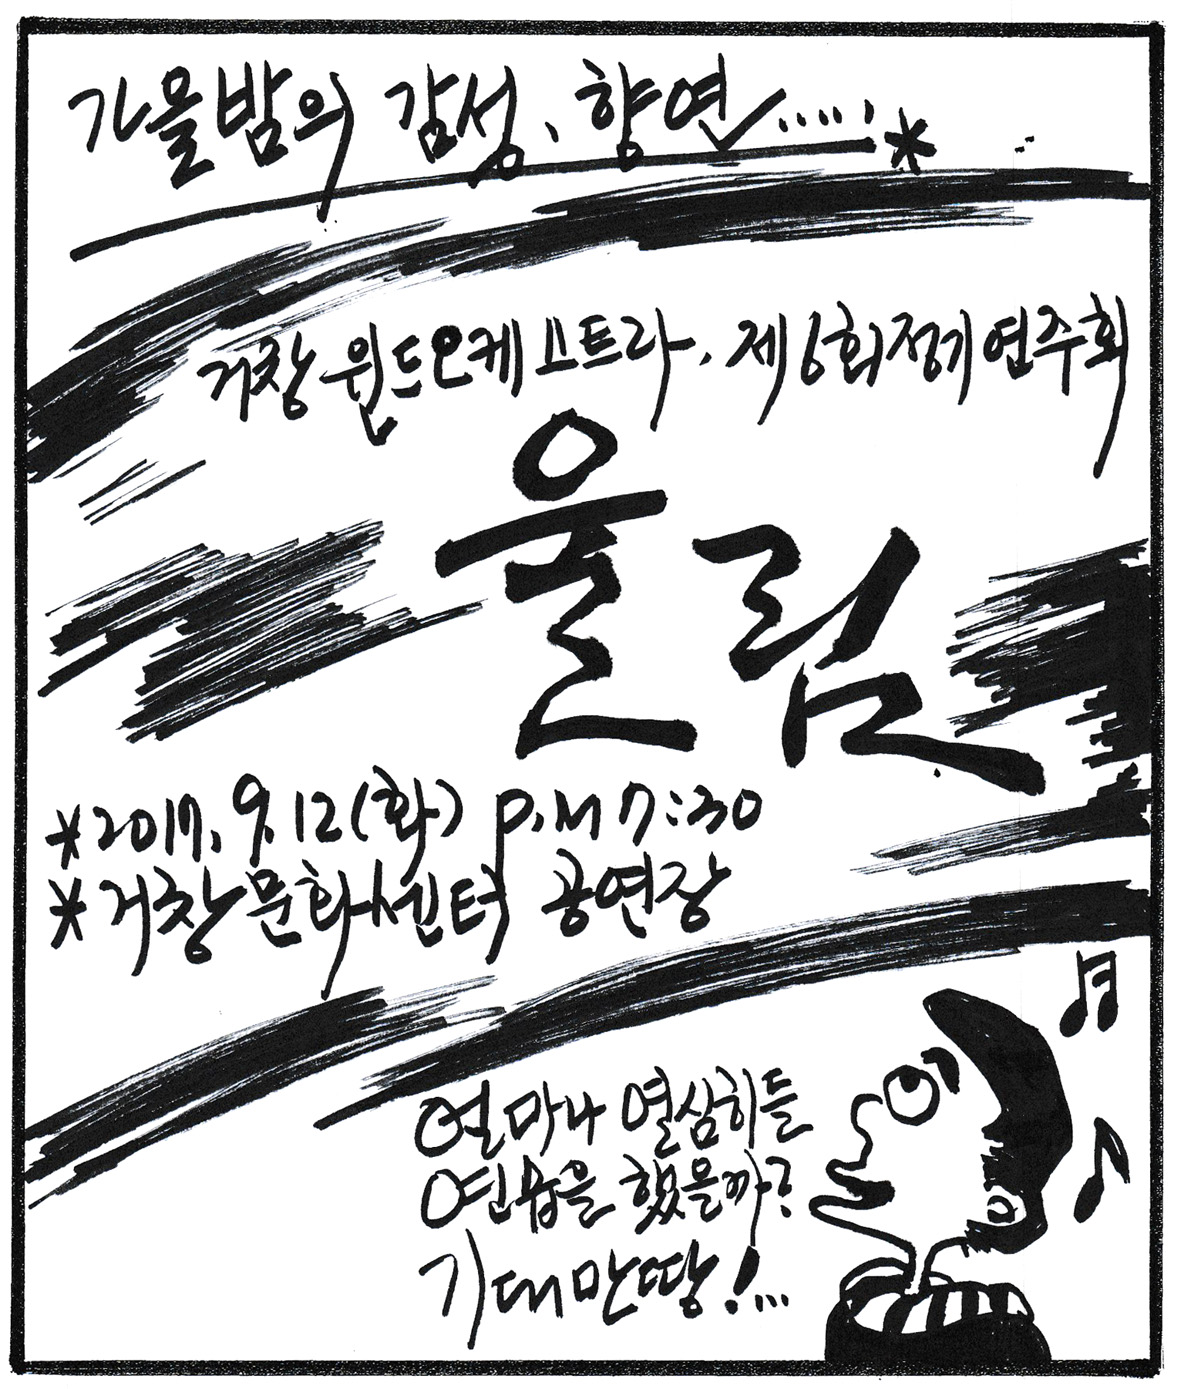 가을밤의 감성, 향연.....*
거창 윈드오케스트라. 제6회정기연주회
울림
*2017. 9. 12 (화) P.M 7:30
*거창문화센터 공연장
얼마나 열심히들
연습을 했을까?
기대만땅!...